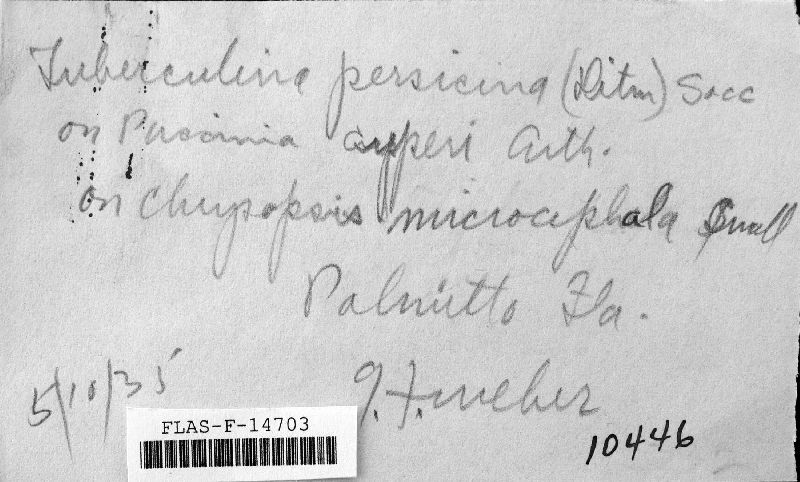 Tuberculina persicina (Ditm) Sacc
on Puccinia cyperi Arth.
on Chrysopsis microcephala Small
Palmetto Fla.
5/10/35
G.F. Weber
FLAS-F-14703
10446